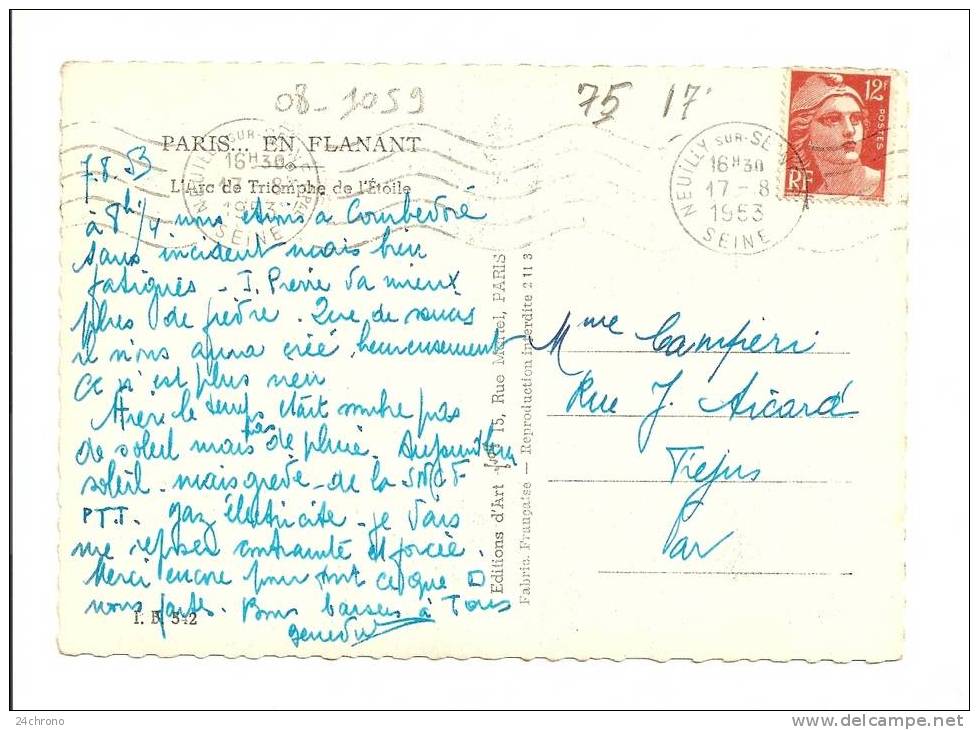 08-1059
75 17
PARIS... EN FLANANT
L'Arc de Triomphe de l'Étoile
NEUILLY SUR-SEINE
16H30
17-8
1953
SEINE
NEUILLY SUR-SEINE
16H30
17-8
1953
SEINE
12F
POSTES
RF
7.8.53
à 8h 1/4 nous étions a Courbevoie
sans incident mais bien
fatigués - J. Pierre va mieux
plus de fièvre. Que de soucis
il nous aura créé. heureusement
ce n'est plus rien
le temps était sombre pas
de soleil mais pas de pluie. Aujourd'hui
soleil. mais grève de la SNCF
PTT. gaz électricité - je vais
me reposer contrainte et forcée.
Merci encore pour tout ce que
vous faites. Bons baisers à Tous
I. D. 542
Editions d'Art 15, Rue Martel, PARIS
Fabric. Française — Reproduction interdite 2 11 3
Mme Campieri
Rue J. Aicard
Frejus
Var
24chrono
www.delcampe.net